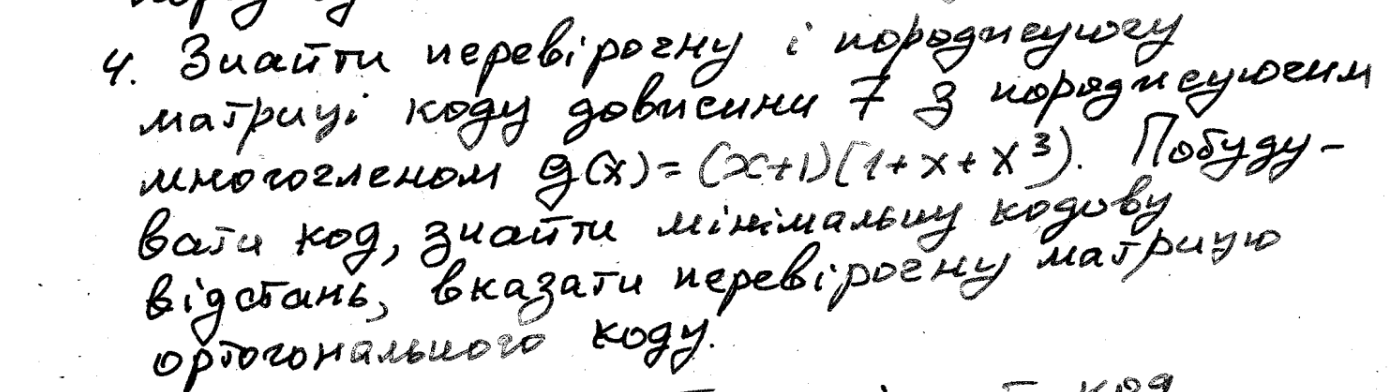 4. Знайти перевірочну і породжуючу
матриці коду довжини 7 з породжуючим
многочленом g(x) = (x+1)(1+x+x³). Побуду-
вати код, знайти мінімальну кодову
відстань, вказати перевірочну матрицю
ортогонального коду.
код